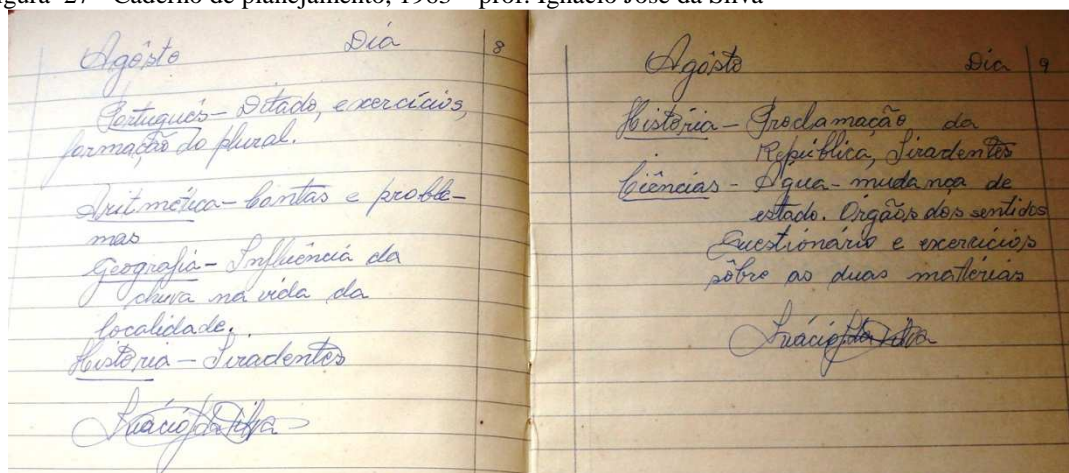 Figura 27 – Caderno de planejamento, 1963 – prof. Ignácio José da Silva
Agôsto Dia 8
Português – Ditado, exercícios,
formação do plural.
Aritmética – Contas e proble-
mas
Geografia – Influência da
chuva na vida da
localidade.
História – Tiradentes
Inácio da Silva
Agôsto Dia 9
História – Proclamação da
República, Tiradentes
Ciências – Água – mudança de
estado. Órgãos dos sentidos
Questionário e exercícios
sôbre as duas matérias
Inácio da Silva